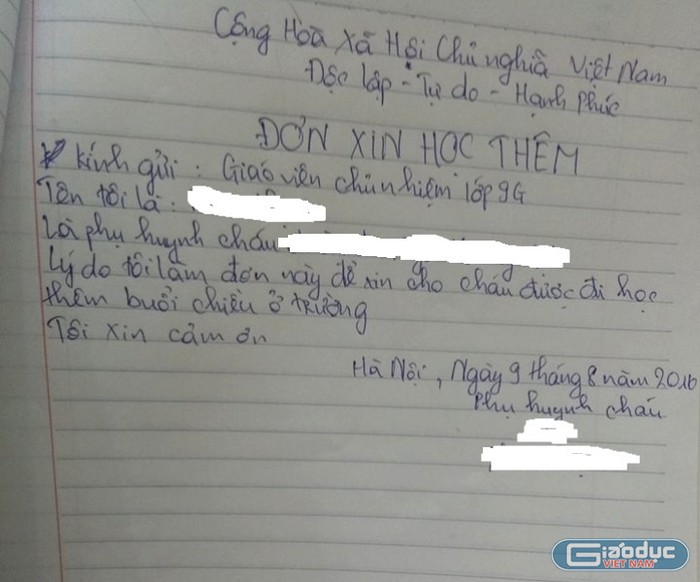 Cộng Hòa Xã Hội Chủ nghĩa Việt Nam
Độc lập - Tự do - Hạnh phúc
ĐƠN XIN HỌC THÊM
Kính gửi : Giáo viên chủ nhiệm lớp 9G
Tên tôi là :
Là phụ huynh cháu
Lý do tôi làm đơn này để xin cho cháu được đi học
thêm buổi chiều ở trường
Tôi xin cảm ơn
Hà Nội, Ngày 9 tháng 8 năm 2016
Phụ huynh cháu
Giáodục
VIỆT NAM